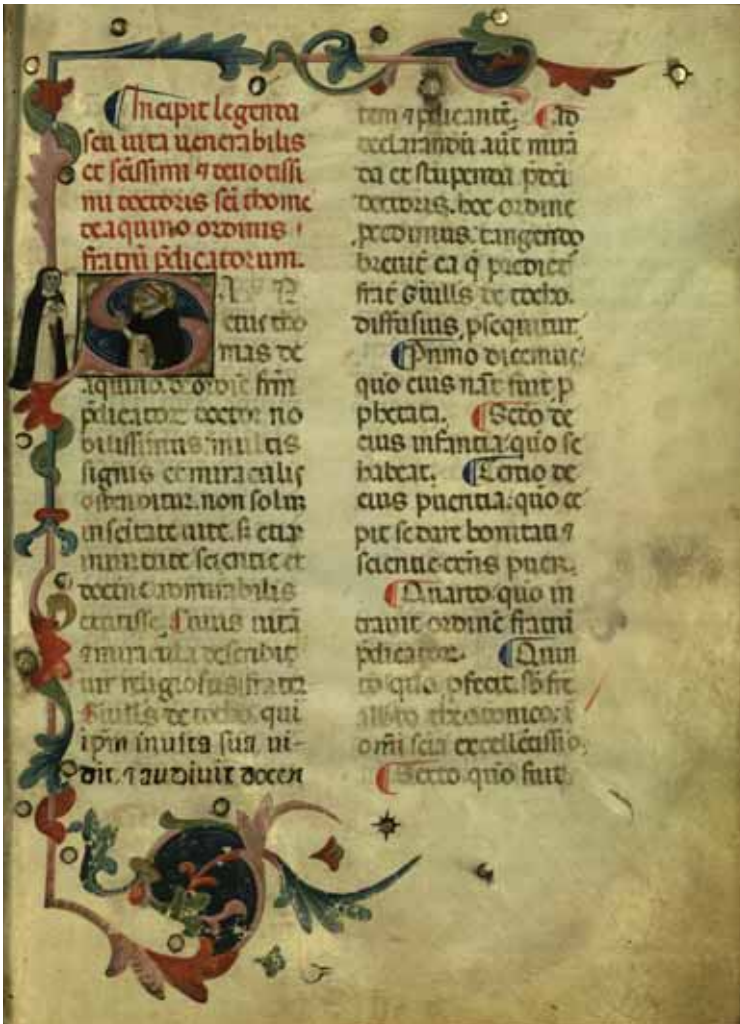 Incipit legenda
seu uita uenerabilis
et scissimi ⁊ deuotissi
mi doctoris sci thome
de aquino ordinis
fratrum pdicatorum.
SAN
ctus tho
mas de
aquino. d ordine frm
pdicator doctor no
bilissimus multis
signis et miraculis
ostenditur. non solum
in scitate uite. s etiam
in uritate scientie et
doctrine admirabilis
extitisse. Cuius uita
⁊ miracula describit
uir religiosus frater
Guills de tocho. qui
ipm in uita sua ui-
dit. ⁊ audiuit docen
tem ⁊ pdicante. Ad
declarandu aut mira
da et stupenda pdci
doctoris. hoc ordine
pcedimus. tangendo
breuit ea q predict
frat Guills de tocho.
diffusius psequitur
Primo dicemus
quo eius nast fuit p
phetata. Scdo de
eius infantia. quo se
habeat. Tertio de
eius pueritia. quo ce
pit se dare bonitati ⁊
scientie ces puer.
Quarto quo in
trauit ordine fratru
pdicator. Quin
to quo pfecit. sb fre
albto theotonico. i
omi scia excellentissio.
Sexto quo fuit